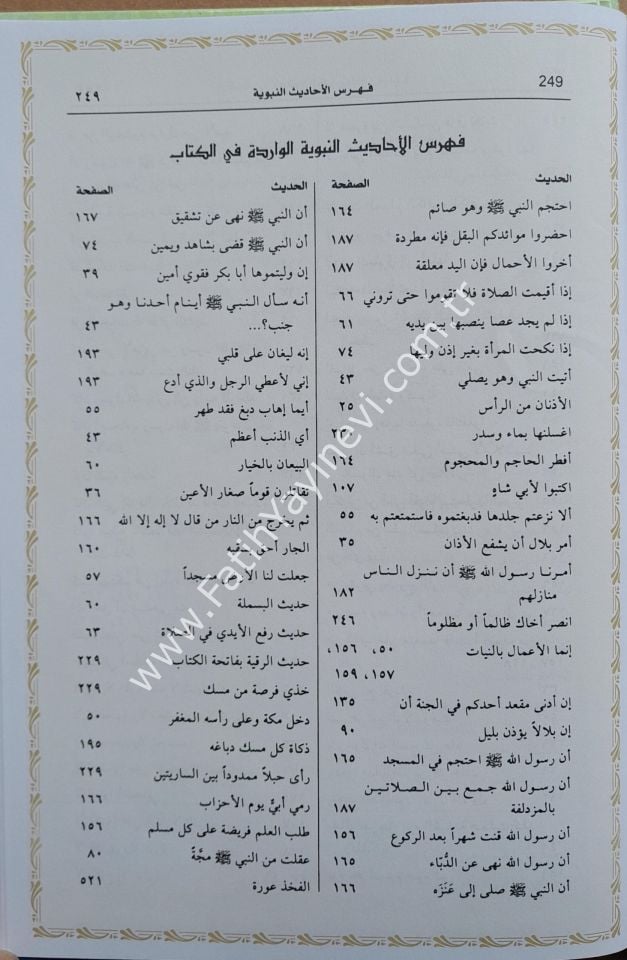 249
فهرس الأحاديث النبوية
٢٤٩
فهرس الأحاديث النبوية الواردة في الكتاب
الحديث الصفحة
احتجم النبي ﷺ وهو صائم ١٦٤
احضروا موائدكم البقل فإنه مطردة ١٨٧
أخروا الأحمال فإن اليد معلقة ١٨٧
إذا أقيمت الصلاة فلا تقوموا حتى تروني ٦٦
إذا لم يجد عصا ينصبها بين يديه ٦١
إذا نكحت المرأة بغير إذن وليها ٧٤
أتيت النبي وهو يصلي ٤٣
الأذنان من الرأس ٢٥
اغسلنها بماء وسدر ٢٣٠
أفطر الحاجم والمحجوم ١٦٤
اكتبوا لأبي شاهٍ ١٠٧
ألا نزعتم جلدها فدبغتموه فاستمتعتم به ٥٥
أمر بلال أن يشفع الأذان ٣٥
أمرنا رسول الله ﷺ أن ننزل الناس
منازلهم ١٨٢
انصر أخاك ظالماً أو مظلوماً ٢٤٦
إنما الأعمال بالنيات ٥٠، ١٥٦،
١٥٧، ١٥٩
إن أدنى مقعد أحدكم في الجنة أن ١٣٥
إن بلالاً يؤذن بليل ٩٠
أن رسول الله ﷺ احتجم في المسجد ١٦٥
أن رسول الله جمع بين الصلاتين
بالمزدلفة ١٨٧
أن رسول الله قنت شهراً بعد الركوع ١٥٦
أن رسول الله نهى عن الدُّبّاء ١٦٥
أن النبي ﷺ صلى إلى عَنَزَه ١٦٦
الحديث الصفحة
أن النبي ﷺ نهى عن تشقيق ١٦٧
أن النبي ﷺ قضى بشاهد ويمين ٧٤
إن وليتموها أبا بكر فقوي أمين ٣٩
أنه سأل النبي ﷺ أينام أحدنا وهو
جنب؟... ٤٣
إنه ليغان على قلبي ١٩٣
إني لأعطي الرجل والذي أدع ١٩٣
أيما إهاب دبغ فقد طهر ٥٥
أي الذنب أعظم ٤٣
البيعان بالخيار ٦٠
تقاتلون قوماً صغار الأعين ٣٦
ثم يخرج من النار من قال لا إله إلا الله ١٦٦
الجار أحق بسقبه ١٦٠
جعلت لنا الأرض مسجداً ٥٧
حديث البسملة ٦٠
حديث رفع الأيدي في الصلاة ٦٣
حديث الرقية بفاتحة الكتاب ٢٢٩
خذي فرصة من مسك ٢٢٩
دخل مكة وعلى رأسه المغفر ٥٠
ذكاة كل مسك دباغه ١٩٥
رأى حبلاً ممدوداً بين الساريتين ٢٢٩
رمي أبيٌّ يوم الأحزاب ١٦٦
طلب العلم فريضة على كل مسلم ١٥٦
عقلت من النبي ﷺ مجَّةً ٨٠
الفخذ عورة ٥٢١
www.FatihYayinevi.com.tr